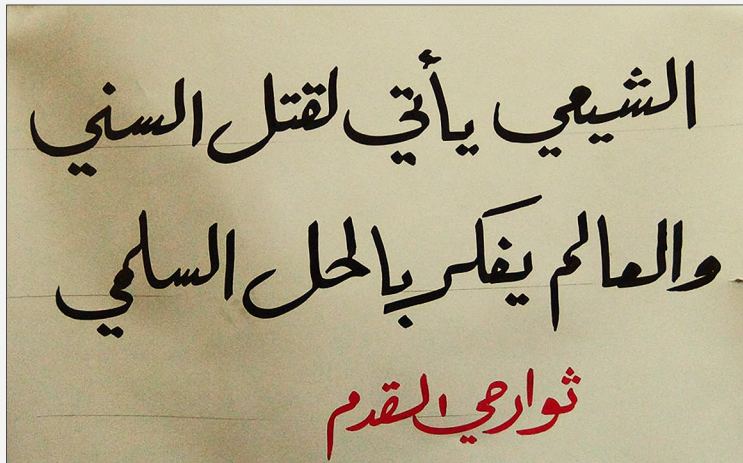 الشيعي يأتي لقتل السني
والعالم يفكر بالحل السلمي
ثوار حي القدم